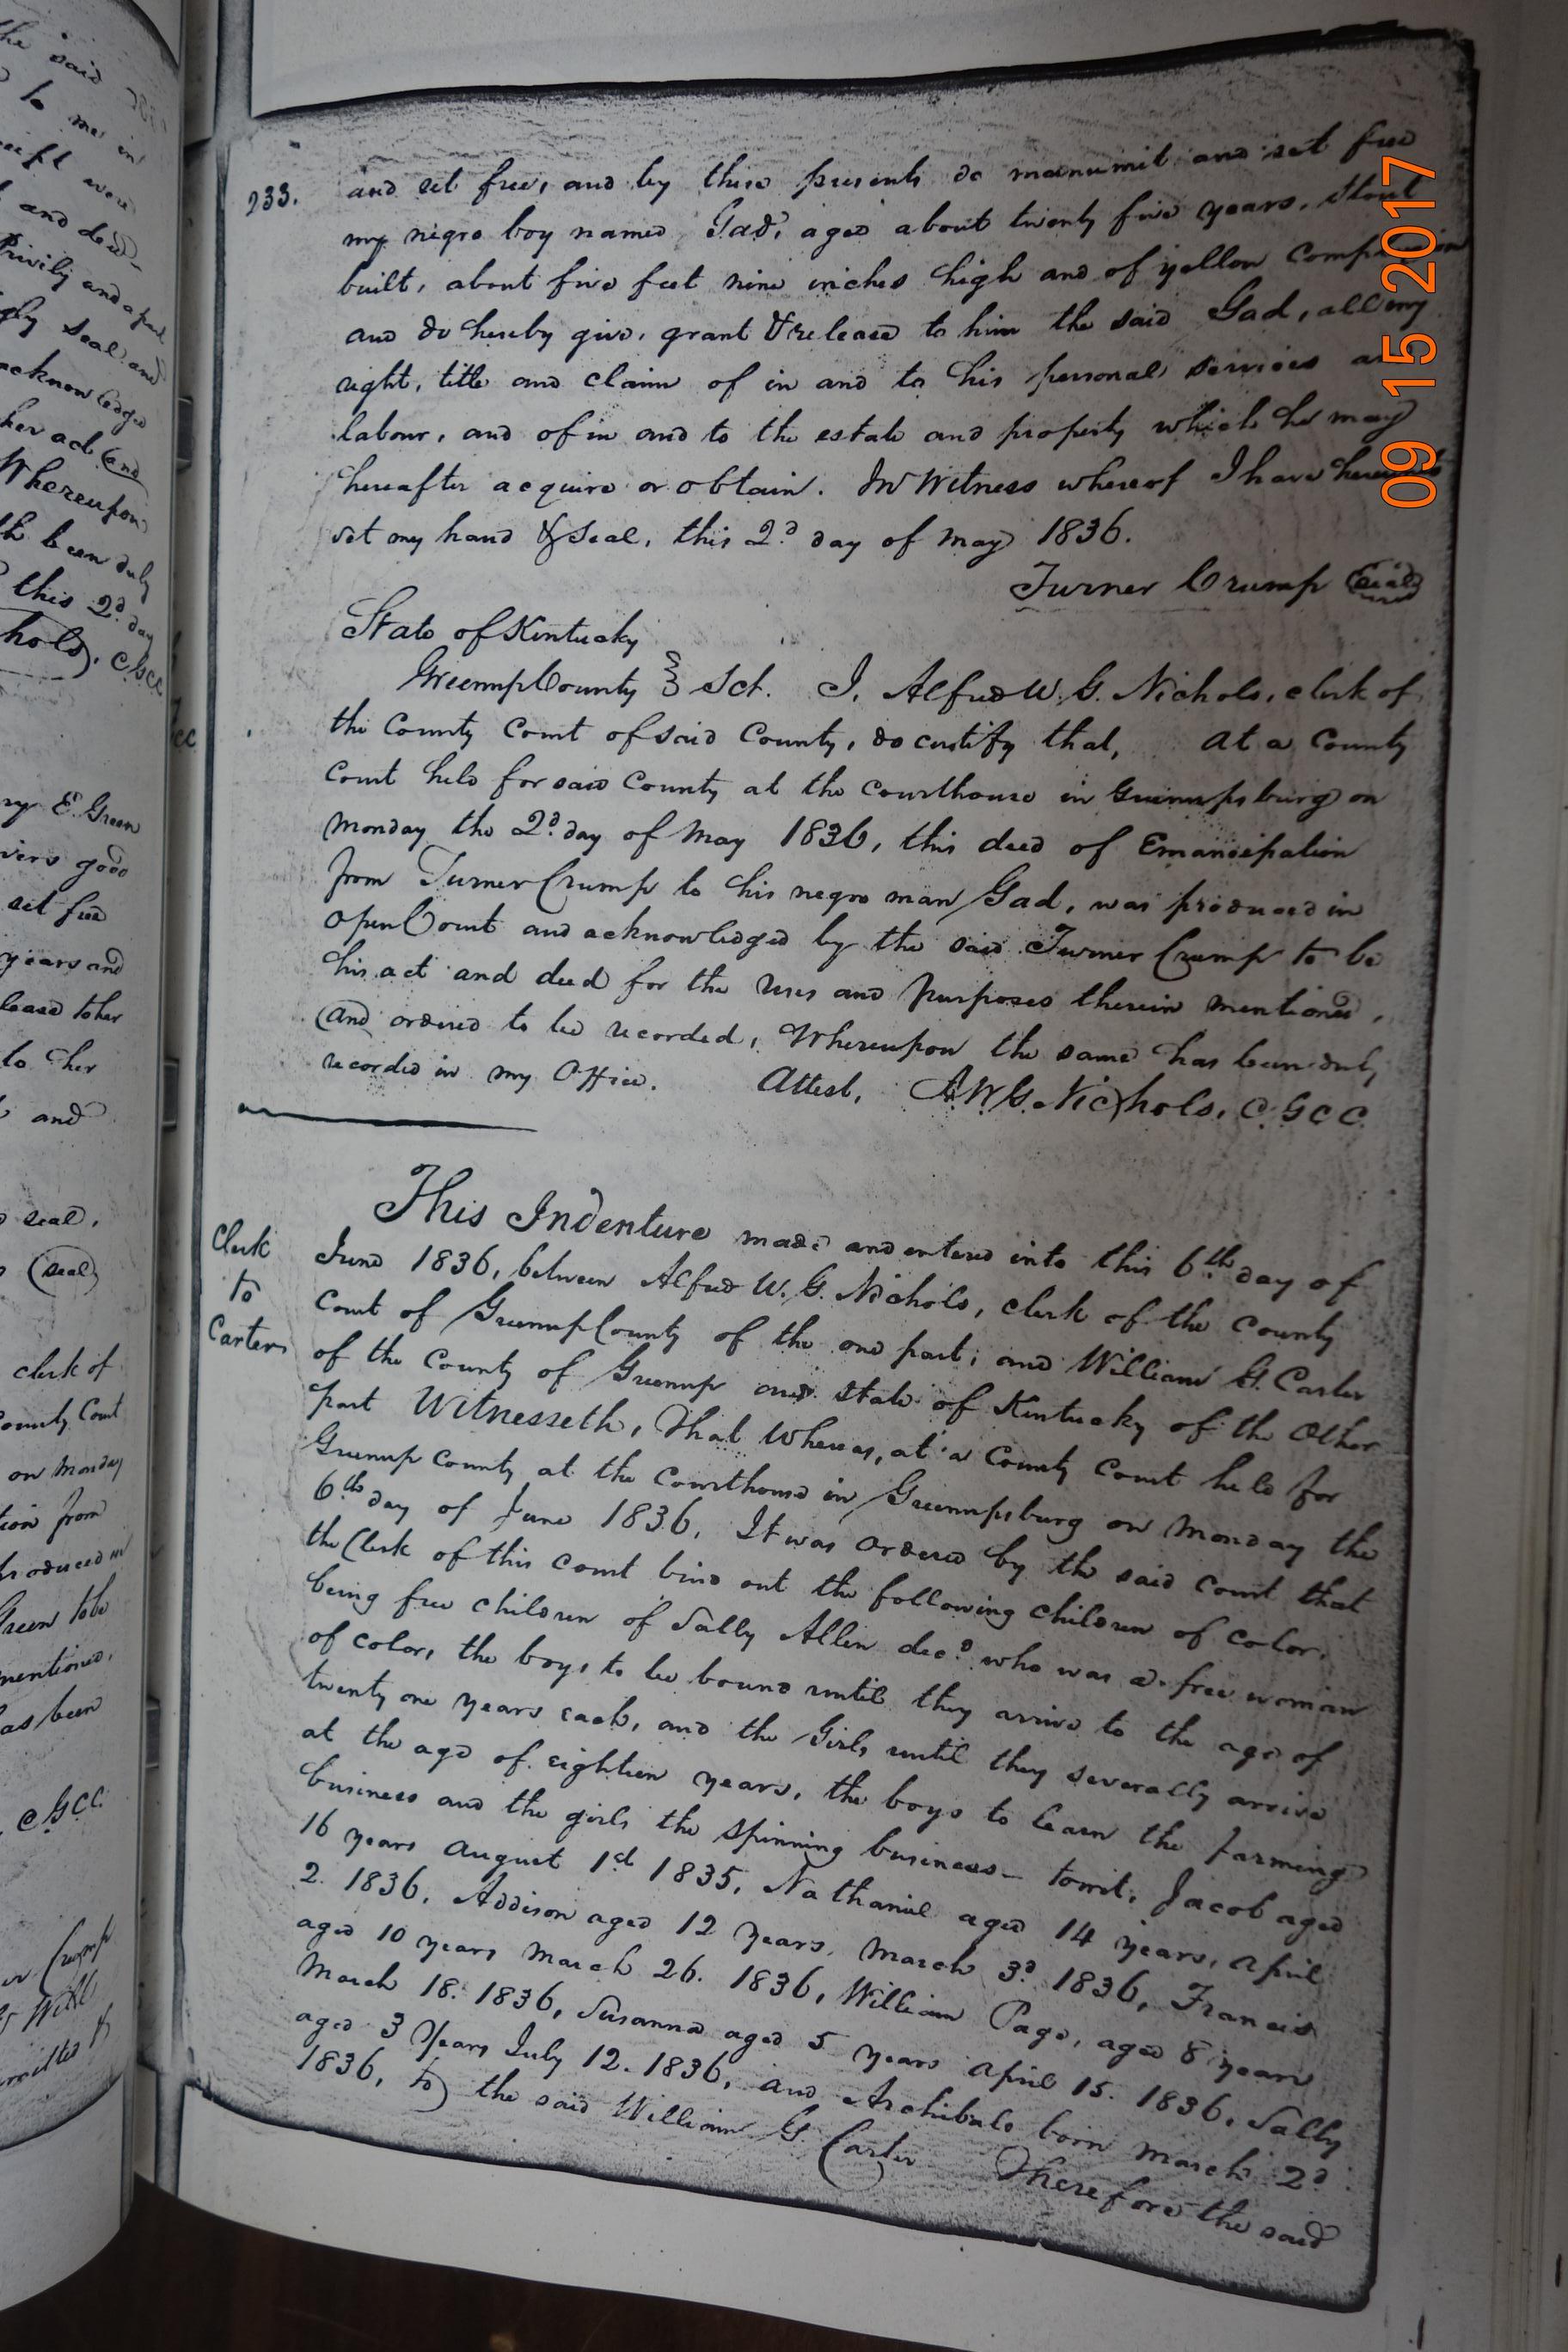 233. and set free, and by these presents do manumit and set free
my negro boy named Gad, aged about twenty five years, stout
built, about five feet nine inches high and of yellow
and do hereby give, grant & release to him the said Gad, all my
right, title and claim of in and to his personal services
labour, and of in and to the estate and property which he may
hereafter acquire or obtain. In Witness whereof I have
set my hand & seal, this 2d day of May 1836.
Turner Crump (Seal)
State of Kentucky
Greenup County } Sct. I, Alfred W. G. Nichols, clerk of
the County Court of said County, do certify that, At a County
Court held for said County at the Courthouse in Greenupsburg on
Monday the 2d day of May 1836, this deed of Emancipation
from Turner Crump to his negro man Gad, was produced in
Open Court and acknowledged by the said Turner Crump to be
his act and deed for the uses and purposes therein mentioned,
and ordered to be recorded, Whereupon the same has been duly
recorded in my Office. Attest, A. W. G. Nichols, C. G C C.
Clerk
to
Carter
This Indenture made and entered into this 6th day of
June 1836, between Alfred W. G. Nichols, clerk of the County
Court of Greenup County of the one part, and William G. Carter
of the County of Greenup and State of Kentucky of the Other
part Witnesseth, That Whereas, at a County Court held for
Greenup County at the Courthouse in Greenupsburg on Monday the
6th day of June 1836, It was Ordered by the said Court that
the Clerk of this Court bind out the following children of color,
being free children of Sally Allen decd who was a free woman
of color, the boys, to be bound until they arrive to the age of
twenty one years each, and the Girls until they severally arrive
at the age of eighteen years, the boys to learn the farming
business and the girls the spinning business - towit, Jacob aged
16 years August 1st 1835, Nathaniel aged 14 years, April
2. 1836, Addison aged 12 years, March 3d 1836, Francis
aged 10 years March 26. 1836, William Page, aged 8 years
March 18. 1836, Susanna aged 5 years April 15. 1836, Sally
aged 3 Years July 12. 1836, and Archibald born March 2d
1836, to the said William G Carter Therefore the said
09 15 2017